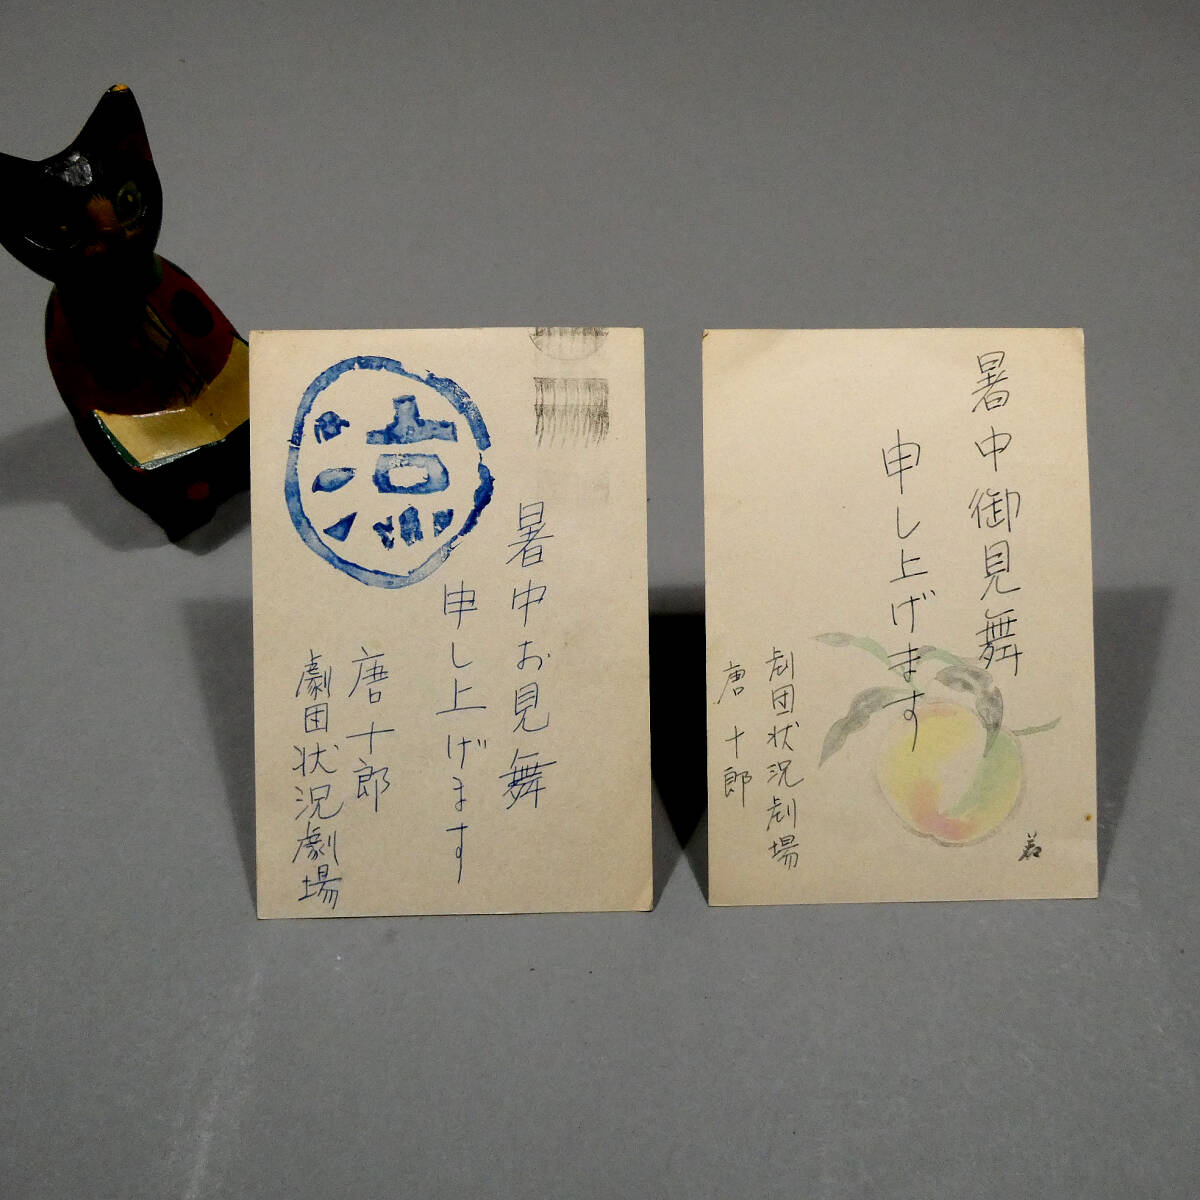 涼
暑中お見舞
申し上げます
唐十郎
劇団状況劇場
暑中御見舞
申し上げます
劇団状況劇場
唐十郎